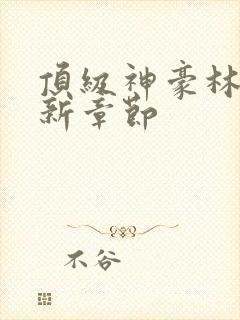 頂級神豪林
新章節
不谷